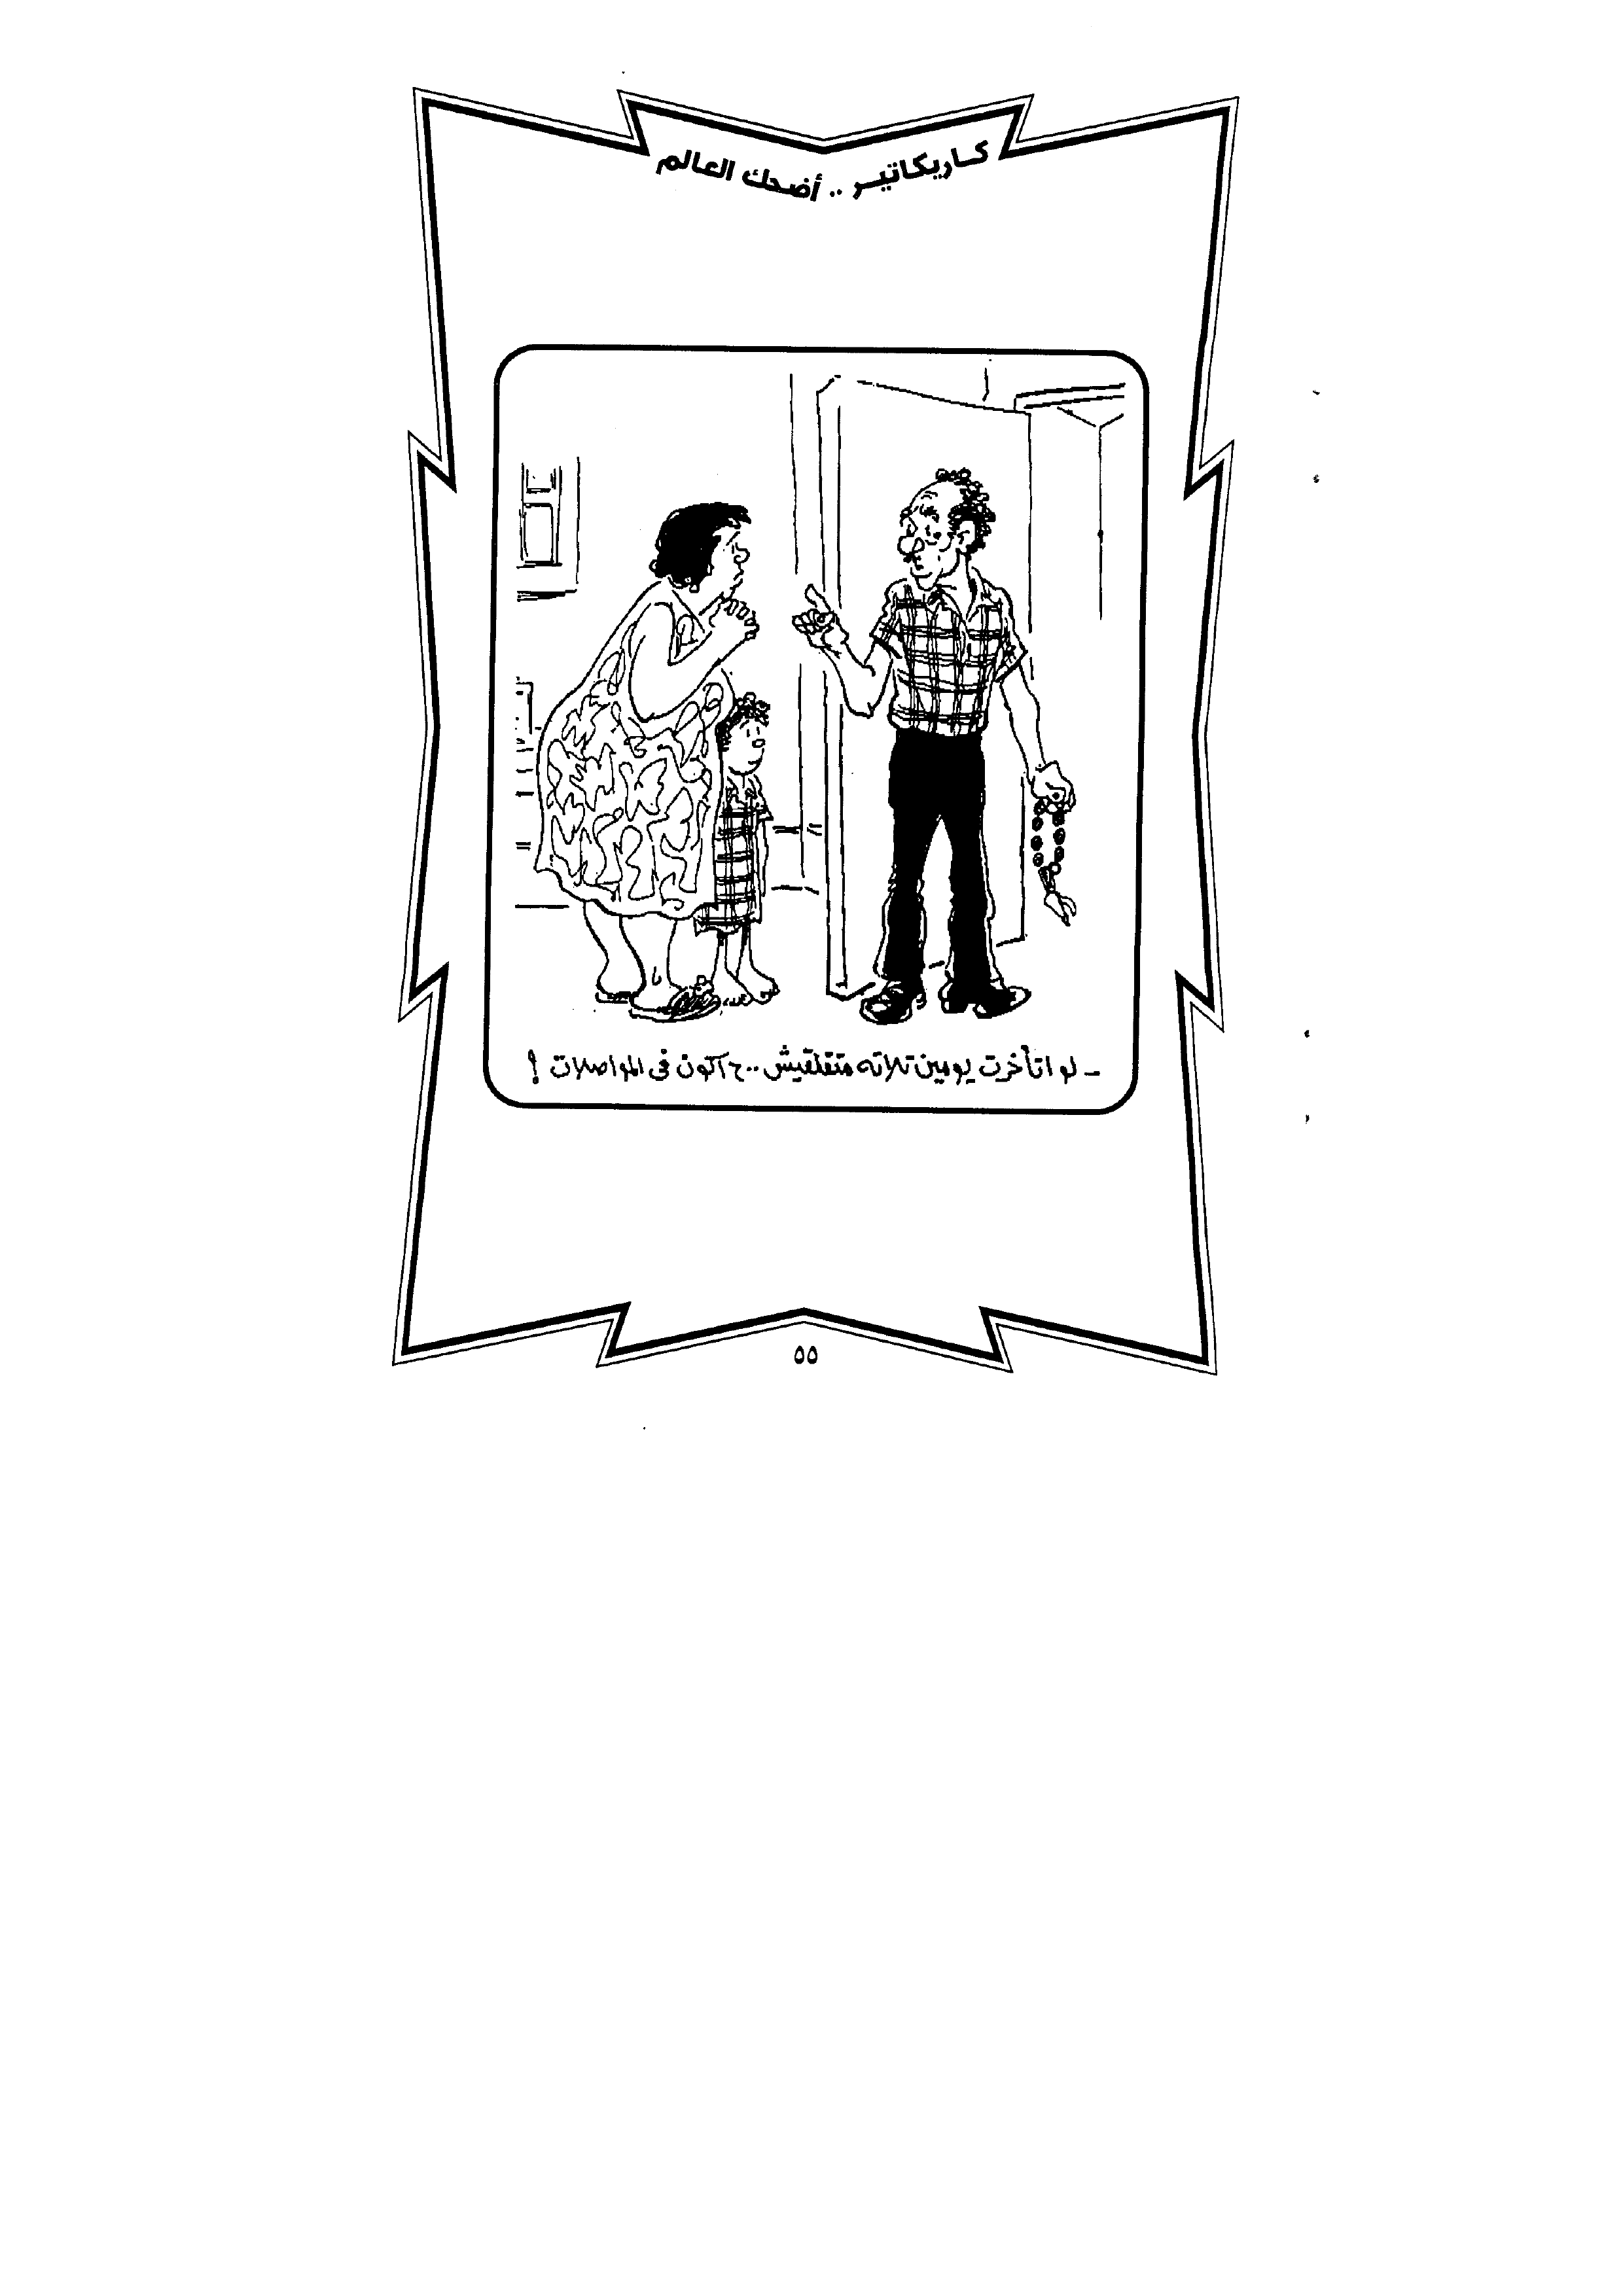 كاريكاتير .. أضحك العالم
- لو اتأخرت يومين تلاته متقلقيش .. ح أكون فى المواصلات !
٥٥